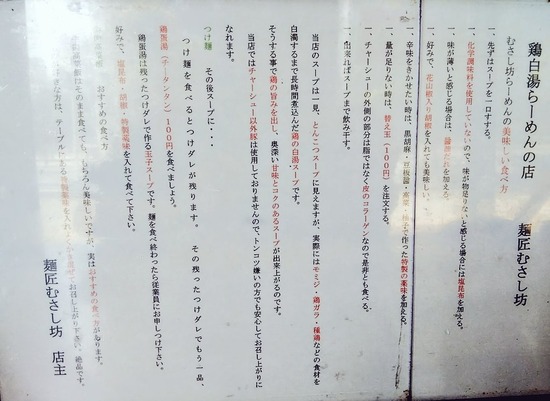 鶏白湯らーめんの店　麺匠むさし坊
むさし坊らーめんの美味しい食べ方
一、先ずはスープを一口する。
一、化学調味料を使用していないので、味が物足りないと感じる場合には塩昆布を加える。
一、味が薄いと感じる場合は、
一、好みで、花山椒入り胡椒を入れても美味しい。
一、辛味をきかせたい時は、黒胡麻・豆板醤・で作った特製の薬味を加える。
一、量が足りない時は、替え玉(100円)を注文する。
一、チャーシューの外側の部分は脂ではなく皮のコラーゲンなので是非とも食べる。
一、出来ればスープまで飲み干す。
当店のスープは一見、とんこつスープに見えますが、実際にはモミジ・鶏ガラ・種鶏などの食材を
白濁するまで長時間煮込んだ鶏の白湯スープです。
そうする事で鶏の旨みを出し、奥深い甘味とコクのあるスープが出来上がるのです。
当店ではチャーシュー以外豚は使用しておりませんので、トンコツ嫌いの方でも安心してお召し上がりに
なれます。
つけ麺　その後スープに・・・
つけ麺を食べるとつけダレが残ります。　その残ったつけダレでもう一品、
鶏蛋湯（チータンタン）100円を食べましょう。
鶏蛋湯は残ったつけダレで作る玉子スープです。麺を食べ終わったら従業員にお申しつけ下さい。
好みで、塩昆布・胡椒・特製薬味を入れて食べて下さい。
おすすめの食べ方
はそのまま食べても、もちろん美味しいですが、実はおすすめの食べ方が有ります。
方は、テーブルにある特製薬味を入れてお召し上がり下さい。絶品です。
麺匠むさし坊　店主